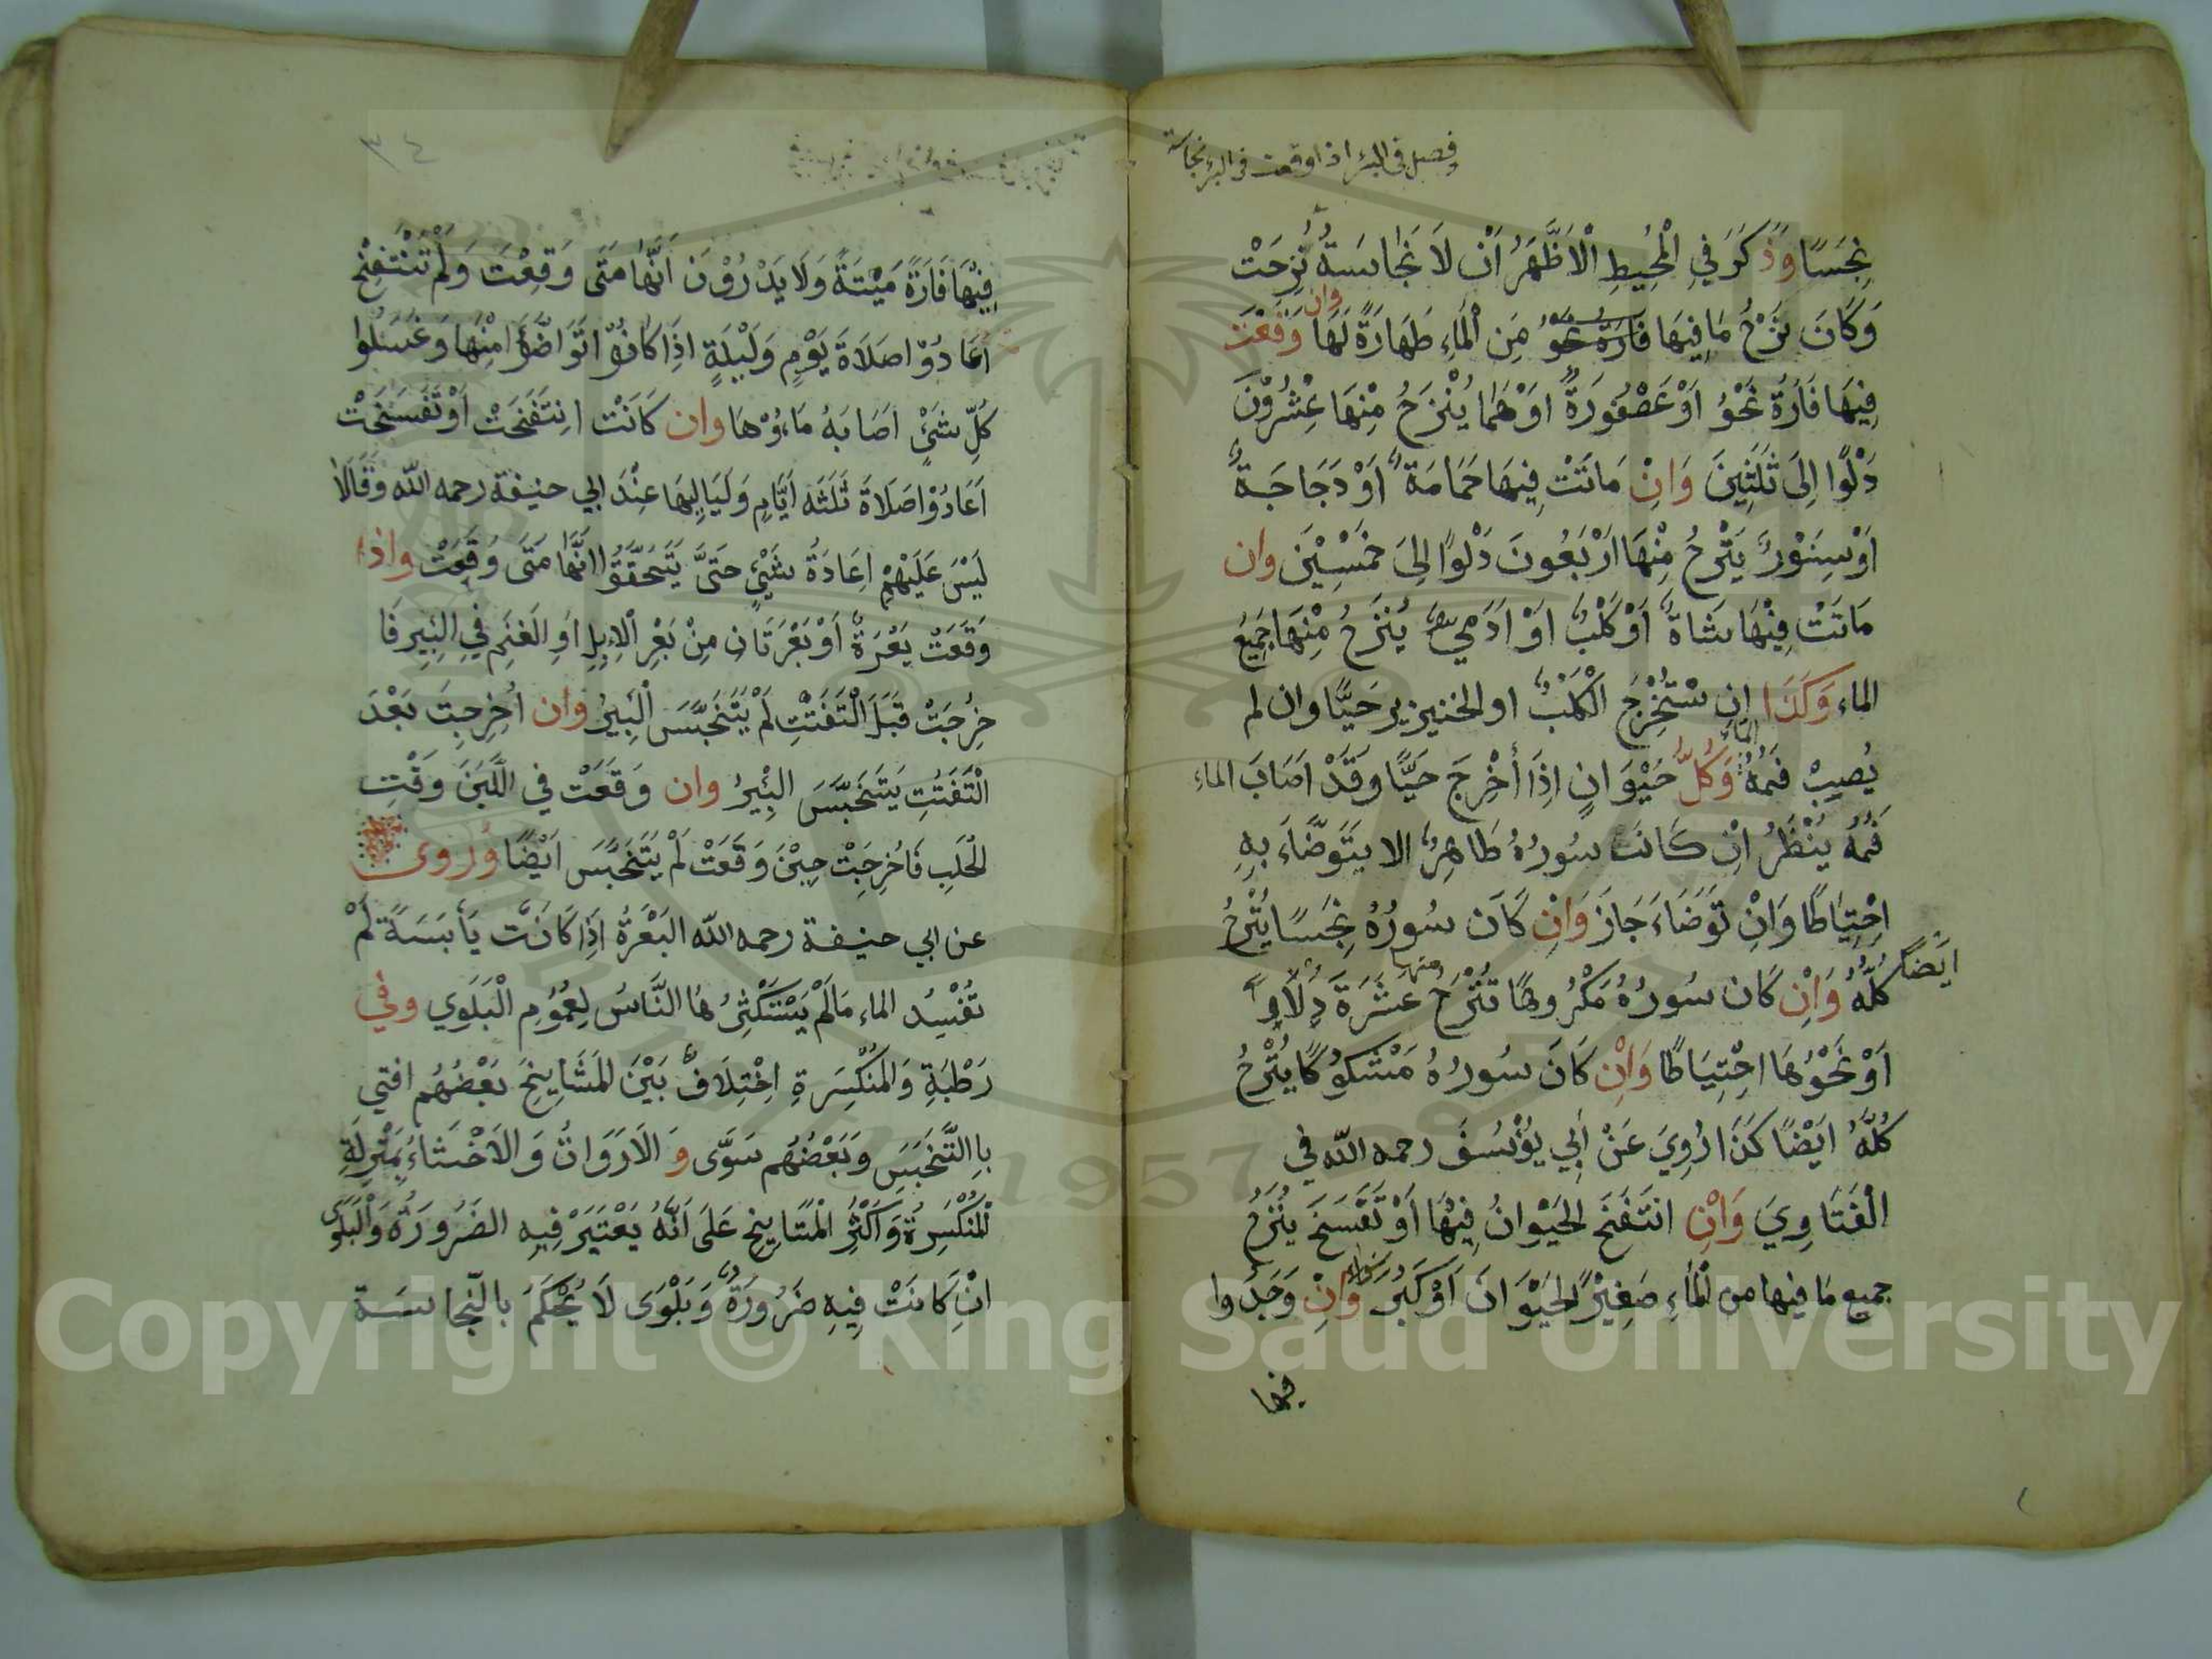 فصل في البئر اذا وقعت في البئر نجاسة
نِجَسًا وَذَكَرَ في الْمُحِيطِ الْاَظْهَرُ اَنْ لَا نَجَاسَةُ نُزِحَتْ
وَكَانَ نَزْحُ مَا فِيهَا فَارَةٌ نَحْوُ مِنَ الْمَاءِ طَهَارَةً لَهَا وان وَقَعْتَ
فِيهَا فَارَةٌ نَحْوُ اَوْ عَصْفُورَةٌ اوْ هُمَا يُنْزَحُ مِنْهَا عِشْرُوْنَ
دَلْوًا اِلَى ثَلَثِينَ وَاِنْ مَاتَتْ فِيهَا حَمَامَةٌ اَوْ دَجَاجَةٌ
اَوْ سِنَوْرٌ يَنْزَحُ مِنْهَا اَرْبَعُونَ دَلْوًا اِلىَ خَمْسِيْنَ وان
مَاتَتْ فِيْهَا شَاةٌ اَوْ كَلْبٌ اوْ اَدَمِيٌّ يُنْزَحُ مِنْهَا جَمِيعُ
الماء وَكَذَا اِن سْتُخْرِجَ الْكَلْبُ او الخنيزير حَيًّا وان لم
يُصِيبْ فَمُهُ الماءَ وَكُلُّ حَيْوَانٍ اِذَا أُخْرِجَ حَيًّا وَقَدْ اَصَابَ الماء
فَمُهُ يُنْظَرُ اِنْ كَانَت سُورُهُ طَاهِرٌ الا يَتَوَضَّاءَ بِهِ
اِحْتِيَاطًا وَاِنْ تَوَضَاءَ جَازَ وَاِنْ كَانَ سُورُهُ نِجَسًا يُنْزَحُ
كُلُّهُ ايَضًا وَاِنْ كَان سُورُهُ مَكْرُوهًا تُنْزَحُ منها عَشَرَةَ دِلَاوٍ
اَوْ نَحْوُهَا احْتِيَاطًا وَاِنْ كَانَ سُورُهُ مَشْكوُكًا يُنْزَحُ
كُلُّهُ ايَضًا كَذَا رُوِيَ عَنْ اَبِي يوُسُفَ رحمه اللّه في
الْفَتَاوِيَ وَاِنْ انْتَفَخَ الحَيْوانُ فِيْهَا اَوْ تَفَسَخَ يُنْزَحُ
جميع مَا فيها من الْمَاءِ صَغِيْرً الحَيْوَانَ اَوْ كَبُرَ وَاِنْ وَجَدُوا
فيها
٣٤
فِيْهَا فَارَةً مَيْتَةً وَلَا يَدْرُوْنَ اَنَّهَا مَتَى وَقِعْتَ وَلَمْ تَنْتَفِخْ
اَعَادُوْا صَلَاةَ يَوْمٍ وَلَيْلَةٍ اذِاَ كَانُوْا تَوَاضَّؤُا مِنْهَا وَغَسَلُوا
كُلِّ شَيْءٍ اَصَابَهُ مَاؤُهَا وان كَانَتْ انِتَفَخَتْ اَوْ تَفَسَخَتْ
اَعَادُوْا صَلَاةَ ثَلَثَه اَيَّامٍ وَلَيَالِيهَا عِنْدَ ابي حنيفة رحمه اللّه وَقَالَا
لَيْسَ عَلَيْهِمْ اِعَادَةُ شَيْءٍ حَتَّى يَتَحَقَّقُوا انَّهَا مَتَى وَقَعِتْ واذا
وَقَعَتْ بَعْرَةٌ اَوْ بَعْرَتَانِ مِنْ بَعْرِ الْاِبِلِ اوِ الغَنِمِ فِي البِيرِ فَا
خْرِجَتْ قَبْلَ الْتَفَتُّتِ لَمْ يَتَنَجَّسَ الْبِيرُ وان اُخْرِجتَ بَعْدَ
الْتَفَتُتِ يَتَنَجَّسَ البِئْيرُ وان وَقَعَتْ في اللَّبَنَ وَقْتِ
الْحَلَبِ فَاُخْرِجَتْ حِيْنَ وَقَعَتْ لَمْ يَتَنَجَّسَ ايْضًا وُرُوى
عن ابي حنيفة رحمه اللّه البَعْرَةُ اذَِا كَانَت يَابَسَةً لَمْ
تُفْسِدُ الماء مَالَمْ يَسْتَكْثِرُهَا النَّاسُ لِعُمُوُمِ الْبَلَوِي وفي
رَطْبَةِ وَالمُنْكَسِرَةِ اخْتِلَافٌ بَيْنَ المَشَايِخِ بَعْضُهُم افتي
بِالتَّنَجسَِ وَبَعْضُهُم سَوَّى وَ الاَرَوَاثُ وَالاَخْثاءُ بِمَنْزِلَةِ
الْمُنْكَسِرَةُ وَاَكْثَرُ الْمَشَايِخِ عَلَى اَنَّهُ يَعْتَبَرْ فِيهِ الضَرُورَةُ وَالْبَلْوَى
انِْ كَانَتْ فِيهِ ضَرُورَةٌ وَبَلْوَى لَا يُحْكَمُ بالنّجاسَة
Copyright © King Saud University
1957